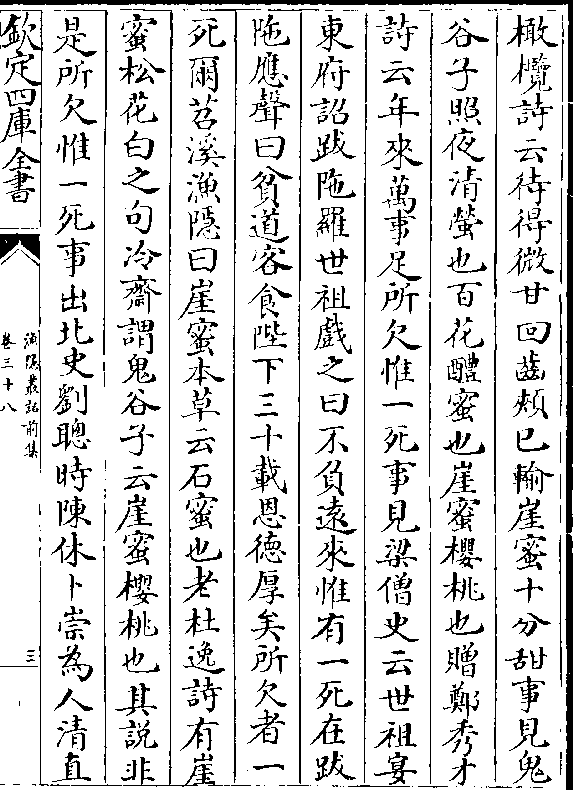 橄欖詩云待得微甘回齒頰已輸崖蜜十分甜事見鬼
谷子照夜清螢也百花醴蜜也崖蜜櫻桃也贈鄭秀才
詩云年來萬事足所欠惟一死事見梁僧史云世祖宴
東府詔跋陁羅世祖戲之曰不負遠來惟有一死在跋
陁應聲曰貧道客食陛下三十載恩德厚矣所欠者一
死爾苕溪漁隠曰崖蜜本草云石蜜也老杜逸詩有崖
蜜松花白之句冷齋謂鬼谷子云崖蜜櫻桃也其説非
是所欠惟一死事出北史劉聰時陳休卜崇為人清直
欽定四庫全書
漁隠叢話前集
卷三十八
三